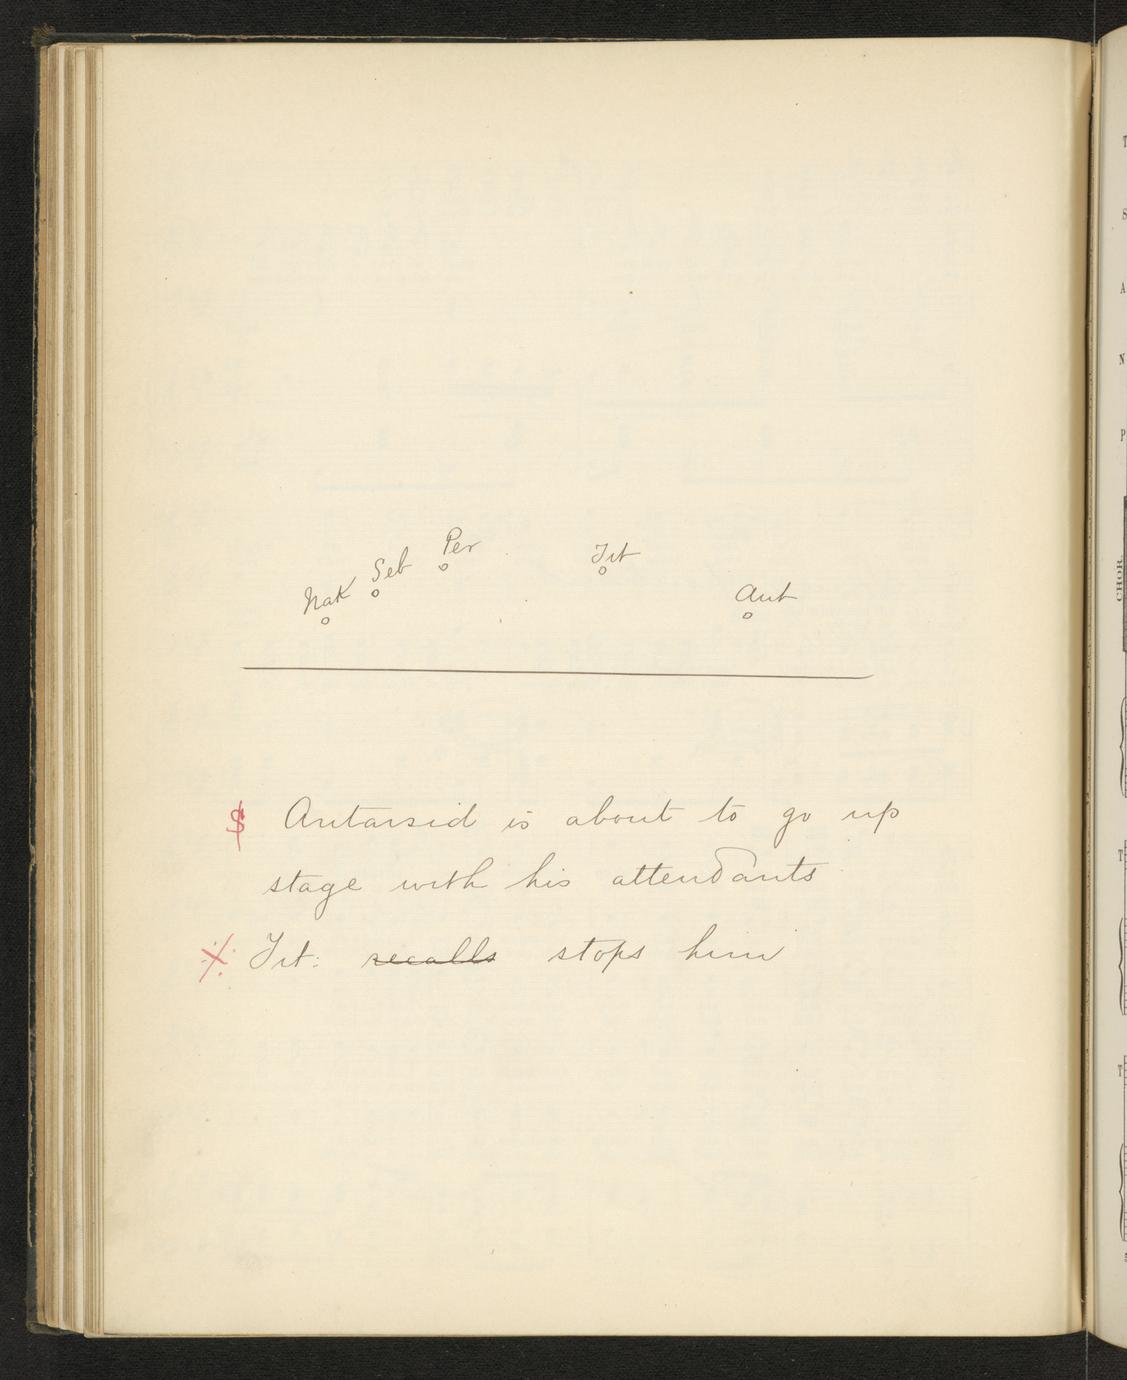 Per
Tit
Seb
Nak
Ant
Antarsid is about to go up
stage with his attendants
Tit: recalls stops him
T
S
A
N
P
CHOR.
T
T